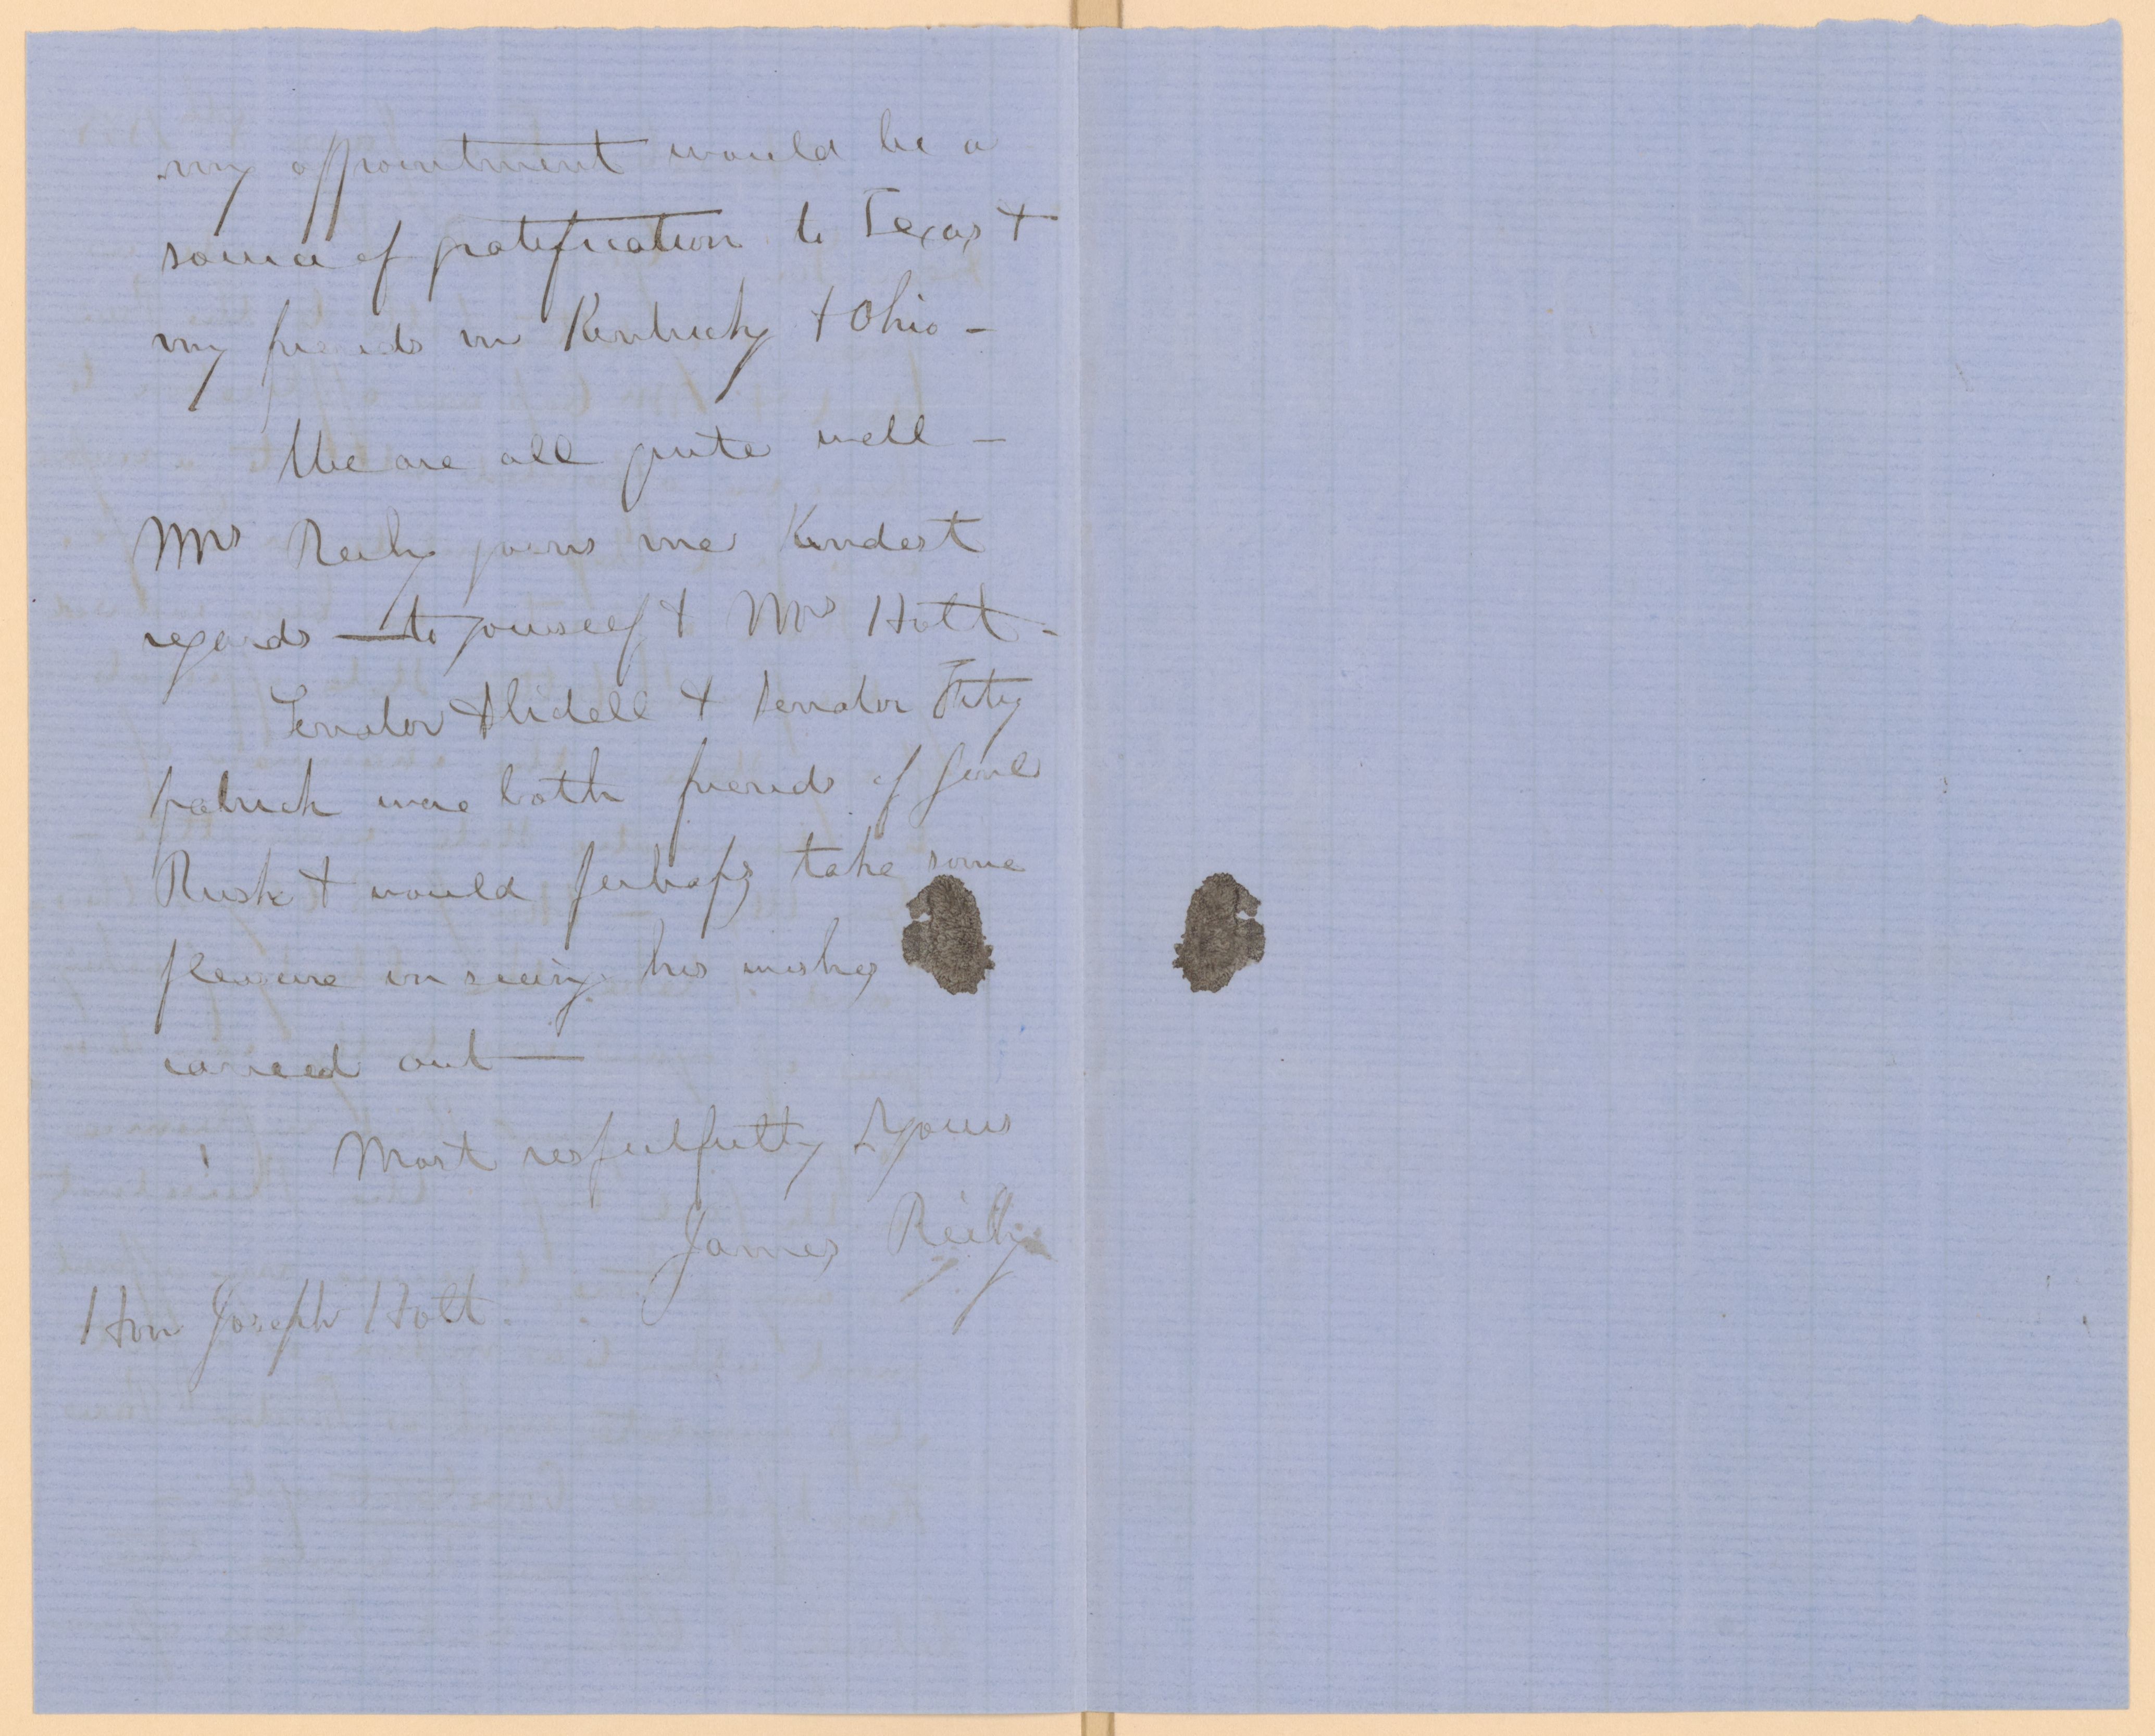 my appointment would be a
source of gratification to Texas &
my friends in Kentucky & Ohio -
We are all quite well -
Mrs Reily joins me Kindest
regards — to yourself & Mrs Holt -
Senator Slidell & Senator Fitz
patrick were both friends of Genl
Rusk & would perhaps take some
pleasure in seeing his wishes
carried out —
Most respectfully Yours
James Reily
Hon Joseph Holt.